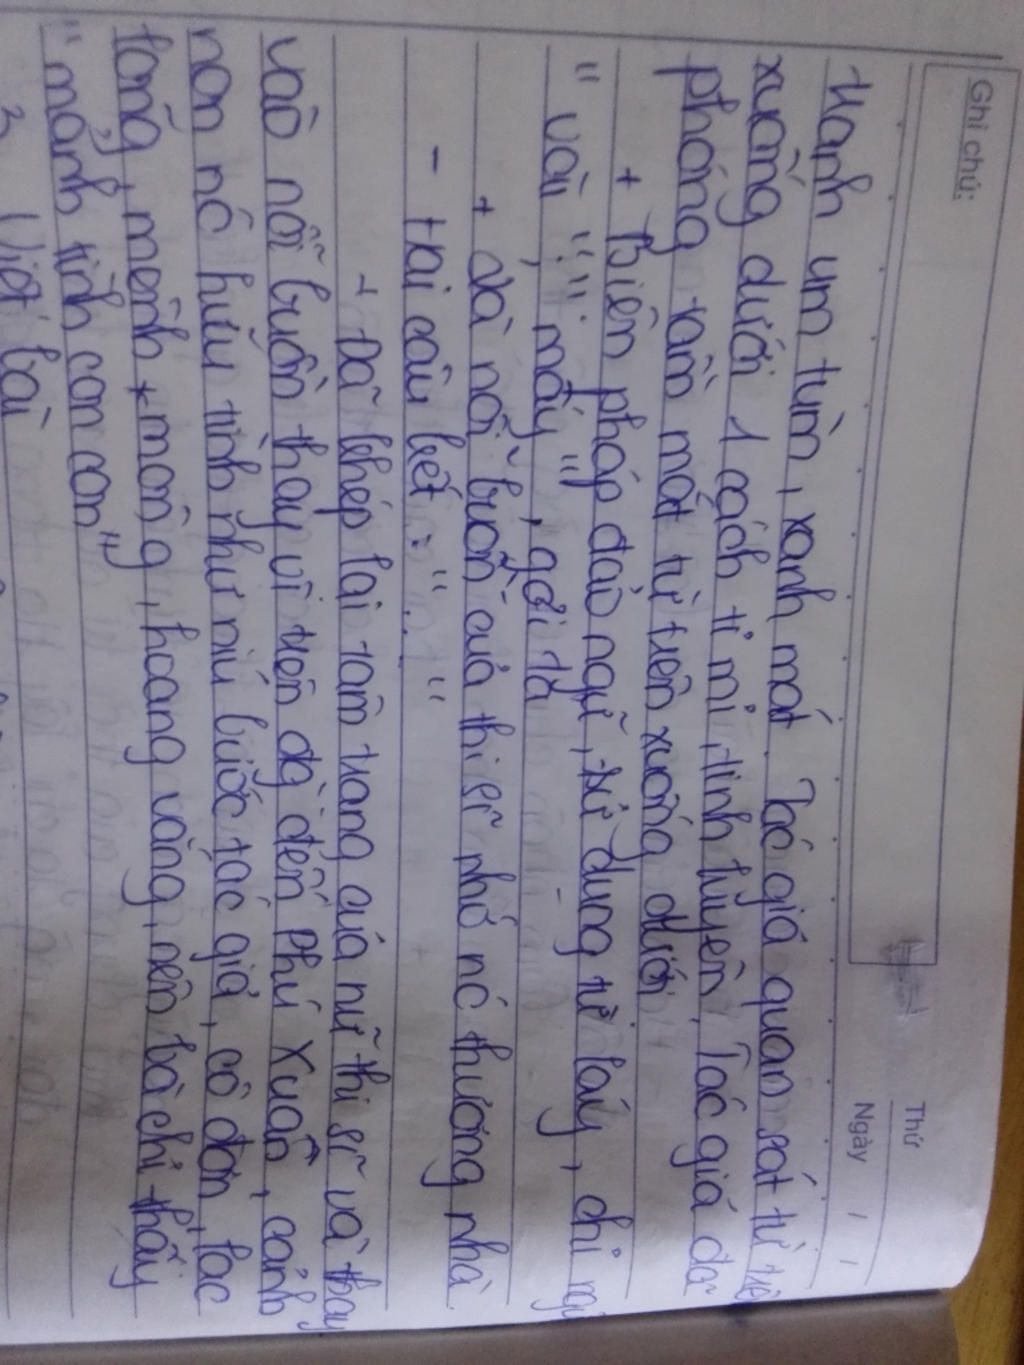 Ghi chú:
Thứ
Ngày / /
tranh um tùm, xanh mát. Tác giả quan sát từ trên
xuống dưới 1 cách tỉ mỉ, tinh tuyên, Tác giả đã
phóng tầm mắt từ trên xuống dưới
+ Biên pháp đảo ngữ, sử dụng từ láy, chỉ
" vài ", " mấy ", gợi tả
+ và nỗi buồn của thi sĩ nhớ nó thương nhà
- Hai câu kết: " . . "
- Đã khép lại tâm trạng của nữ thi sĩ và thay
vào nỗi buồn thay vì trên đà đến Phú Xuân, cảnh
non nó hữu tình như níu bước tác giả, cô đơn, lạc
lõng, mênh mông, hoang vắng, nên bà chỉ thấy
" mảnh tình con con "
3. Viết bài